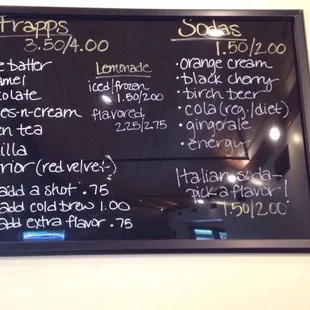 frapps
3.50/4.00
batter
late
es-n-cream
tea
illa
rior (red velvet)
add a shot .75
add cold brew 1.00
add extra flavor .75
Lemonade
iced/frozen
1.50/2.00
flavored
2.25/2.75
Sodas
1.50/2.00
• orange cream
• black cherry
• birch beer
• cola (reg./diet)
• gingerale
• energy
Italian soda-
pick a flavor!
1.50/2.00